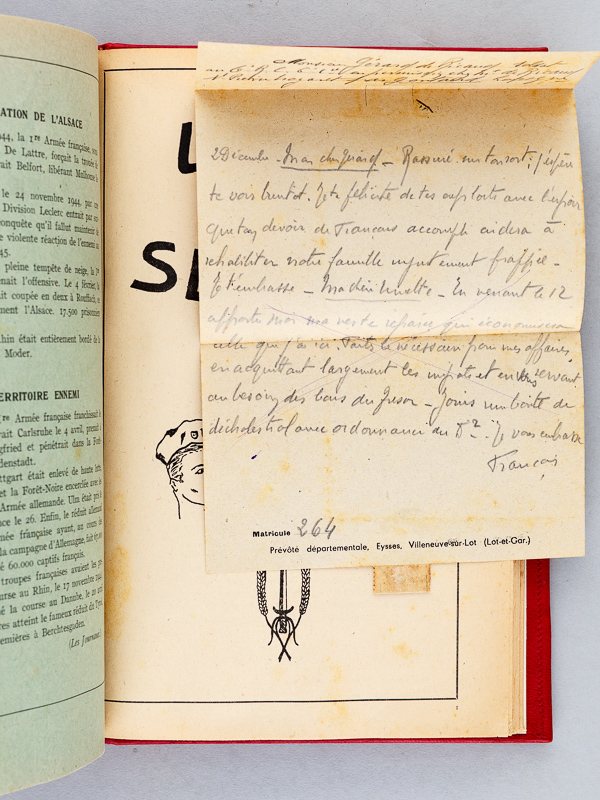 ATION DE L'ALSACE
944, la 1re Armée française, sous
De Lattre, forçait la trouée de
rait Belfort, libérant Mulhouse le
le 24 novembre 1944, par une
Division Leclerc entrait par sur-
onquête qu'il fallut maintenir de
e violente réaction de l'ennemi au
45.
pleine tempête de neige, la 1re
enait l'offensive. Le 4 février, la
it coupée en deux à Rouffach, et
ment l'Alsace. 17.500 prisonniers
hin était entièrement bordé de la
Moder.
ERRITOIRE ENNEMI
1re Armée française franchissait le
rait Carlsruhe le 4 avril, prenait
gfried et pénétrait dans la Forêt-
denstadt.
ttgart était enlevé de haute lutte
et la Forêt-Noire encerclée avec le
Armée allemande. Ulm était pris
ce le 26. Enfin, le réduit allemand
mée française ayant, au cours de
la campagne d'Allemagne, fait
é 60.000 captifs français.
troupes françaises avaient les pre-
ourse au Rhin, le 17 novembre 1944
né la course au Danube, le 20 avril
res atteint le fameux réduit du Tyrol
remières à Berchtesgaden.
(Les Journaux.)
L
SE
Monsieur Gérard de
2 Décembre - Mon cher Gérard - Rassuré sur ton sort, j'espère
te voir bientôt. Je te félicite de tes exploits avec l'espoir
que ton devoir de Français accompli aidera à
réhabiliter notre famille injustement frappée -
Je t'embrasse - Ma chère Minette - En venant le 12
apportez moi ma veste réparée qui économisera
celle que j'ai ici. Faites le nécessaire pour mes affaires
en acquittant largement les impôts et en vous servant
au besoin des bons du Trésor - Joins une boîte de
décholestrol avec ordonnance du Dr. Je vous embrasse
François
Matricule 264
Prévôté départementale, Eysses, Villeneuve-sur-Lot (Lot-et-Gar.)